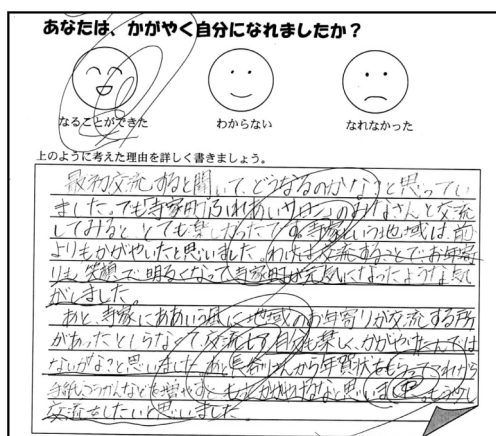 あなたは、かがやく自分になれましたか？
なることができた わからない なれなかった
上のように考えた理由を詳しく書きましょう。
最初交流すると聞いて、どうなるのかなぁと思ってい
ました。でも寺家町ふれあいサロンのみなさんと交流
してみると、とても楽しかったです。寺家という地域は前
よりもかがやいたと思いました。わけは交流することで、お年寄
りも笑顔で明るくなって寺家町が元気になったような気
がしました。
あと、寺家にああいう風に地域のお年寄りが交流する所
があったとしらなくて、交流して自分も楽しく、かがやけたんでは
ないかなと思いました。あと長谷川さんから年賀状をもらってこれから
手紙こうかんなどを増やすと、もっとかがやけるなと思いました。
交流をしたいと思いました。